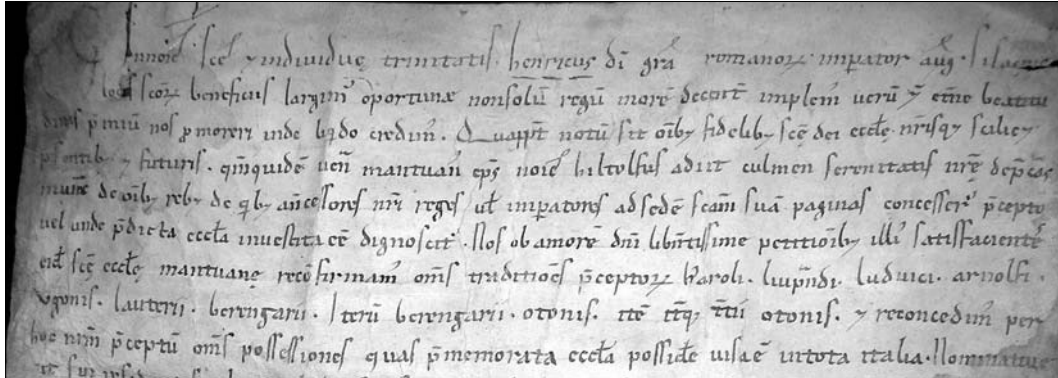 Innoīe scē ⁊ indiuiduę trinitatis. henricus dī grā romanoꝝ imperator auḡ. Si sacris
locis scōꝝ beneficiis largim̄ oportunæ nonsolū regū morē decent̄ implem̄ uerū &̄ etnē beatitu
dinis p̄miū nos ꝓmoreri inde liq̄do credim̄. Quapp̄t notū sit oīb; fidelib; scē dei eccłę. nr̄isq; scilic&
p̄sentib; ⁊ futuris. qm̄quidē uen̄ mantuan̄ ep̄s noīe hiltolfus adiit culmen serenitatis nr̄ę dep̄cās
de oīb; reb; de q̄b; an̄cessores nr̄i reges uł imp̄atores ad sedē scām suā paginas concesser̄ p̄cepto
uel unde p̄dicta eccła inuestita eē dignoscit̄. Nos ob amorē dn̄i libn̄tissime petitiōib; illi' satisfaciente
eid̄ scę eccłę mantuanę recōfirmam̄ om̄s traditiōes p̄ceptoꝝ karoli. liup̄ndi. luduici. arnolfi.
Vgonis. lauterii. berengarii. Iterū berengarii. otonis. itē itq; t̄tii otonis. ⁊ reconcedim̄ per
hoc nr̄m p̄ceptū om̄s possessiones quas p̄memorata eccła possid̄e uisa ē in tota italia. Nominatiue